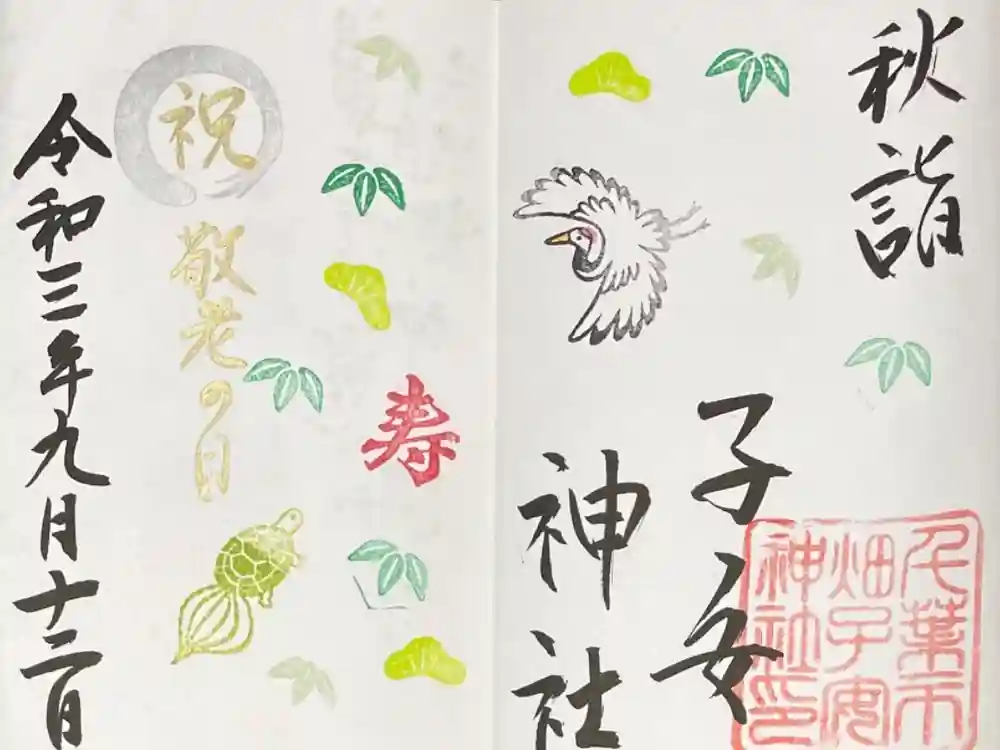 秋詣
子安
神社
千葉市
畑子安
神社印
寿
祝
敬老の日
令和三年九月十二日